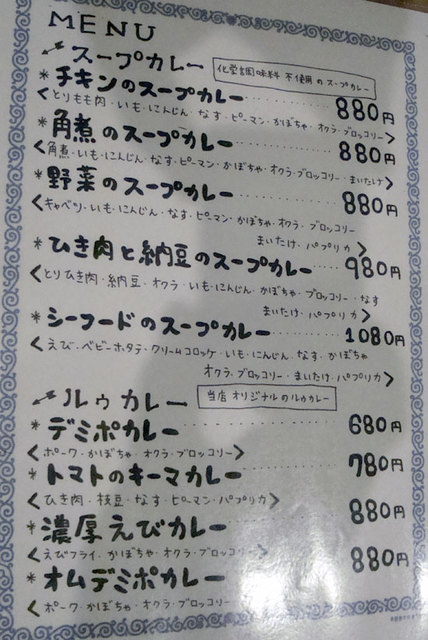 MENU
スープカレー 化学調味料不使用のスープカレー
*チキンのスープカレー 880円
<とりもも肉・いも・にんじん・なす・ピーマン・かぼちゃ・オクラ・ブロッコリー>
*角煮のスープカレー 880円
<角煮・いも・にんじん・なす・ピーマン・かぼちゃ・オクラ・ブロッコリー・まいたけ>
*野菜のスープカレー 880円
<キャベツ・いも・にんじん・なす・ピーマン・かぼちゃ・オクラ・ブロッコリー
まいたけ・パプリカ>
*ひき肉と納豆のスープカレー 980円
<とりひき肉・納豆・オクラ・いも・にんじん・かぼちゃ・ブロッコリー・なす
まいたけ・パプリカ>
*シーフードのスープカレー 1080円
<えび・ベビーホタテ・クリームコロッケ・いも・にんじん・なす・かぼちゃ
オクラ・ブロッコリー・まいたけ・パプリカ>
ルゥカレー 当店オリジナルのルゥカレー
*デミポカレー 680円
<ポーク・かぼちゃ・オクラ・ブロッコリー>
*トマトのキーマカレー 780円
<ひき肉・枝豆・なす・ピーマン・パプリカ>
*濃厚えびカレー 880円
<えびフライ・かぼちゃ・オクラ・ブロッコリー>
*オムデミポカレー 880円
<ポーク・かぼちゃ・オクラ・ブロッコリー